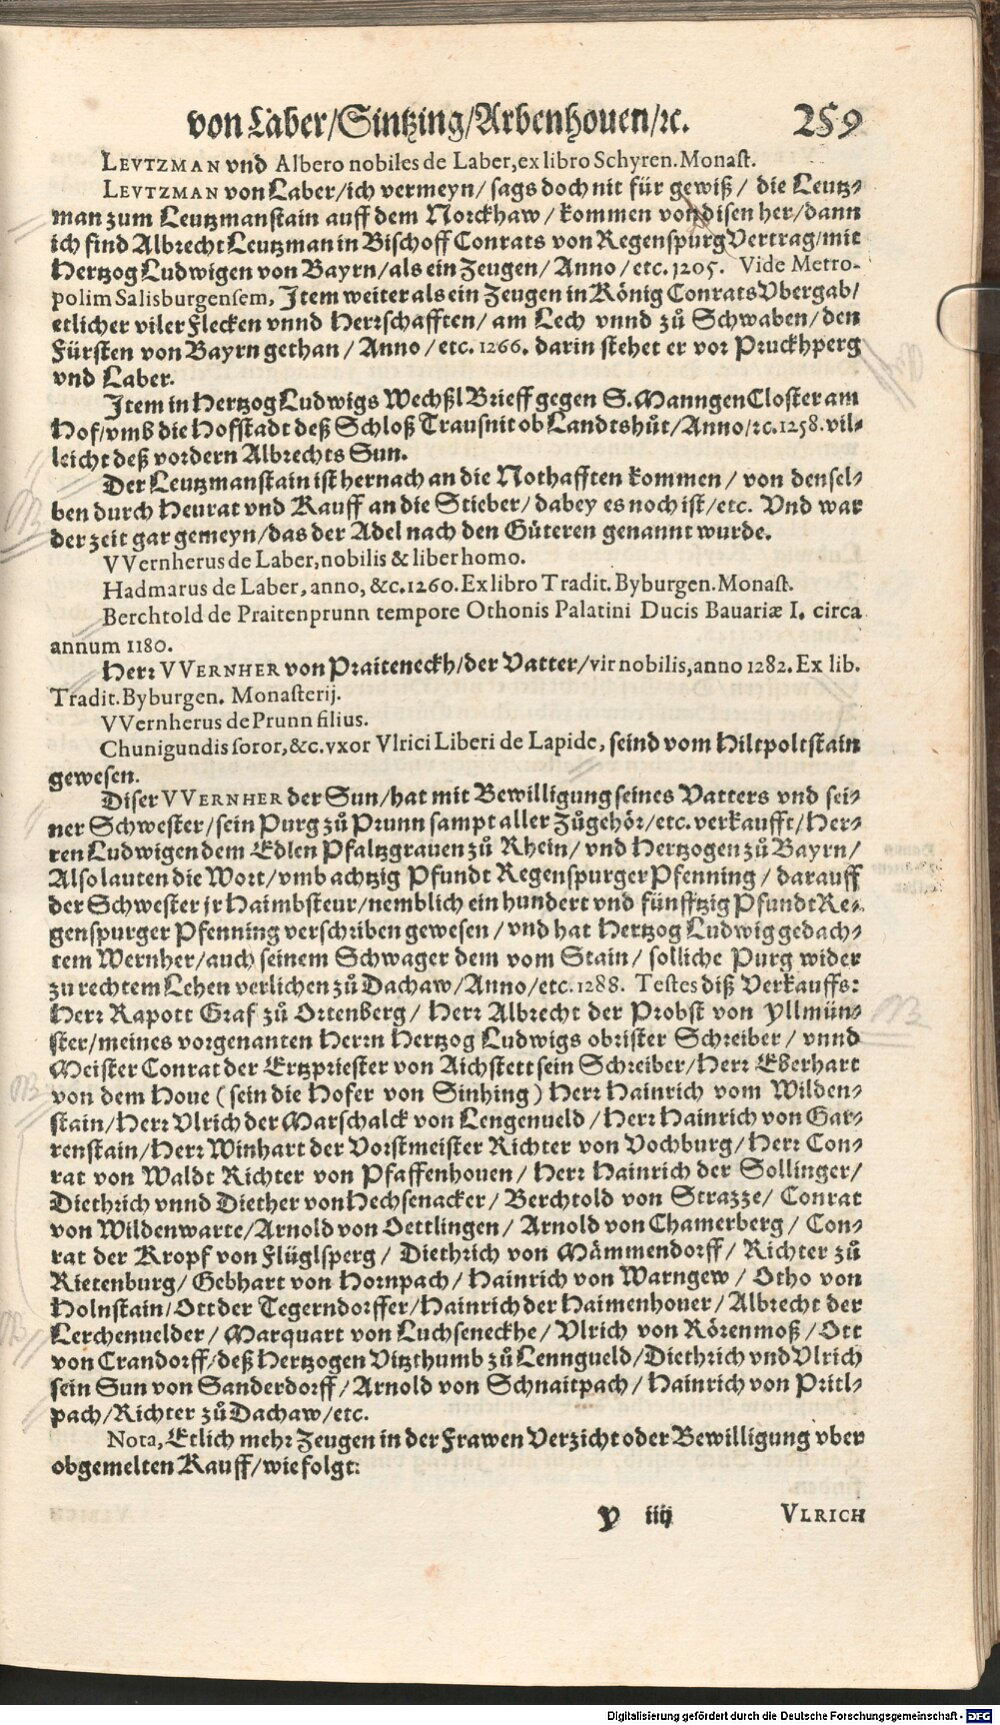 von Laber/Sintzing/Arbenhouen/ꝛc. 259
LEVTZMAN vnd Albero nobiles de Laber, ex libro Schyren. Monast.
LEVTZMAN von Laber/ich vermeyn/ sags doch nit für gewiß/ die Leutz-
man zum Leutzmanstain auff dem Norckhaw/ kommen von disen her/dann
ich find Albrecht Leutzman in Bischoff Conrats von Regenspurg Vertrag/mit
Hertzog Ludwigen von Bayrn/als ein Zeugen/ Anno/etc. 1205. Vide Metro-
polim Salisburgensem, Item weiter als ein Zeugen in König Conrats Vbergab/
etlicher viler Flecken vnnd Herrschafften/ am Lech vnnd zů Schwaben/den
Fürsten von Bayrn gethan/ Anno/etc. 1266. darin stehet er vor Pruckhperg
vnd Laber.
Item in Hertzog Ludwigs Wechßl Brieff gegen S. Manngen Closter am
Hof/vmb die Hofstadt deß Schloß Trausnit ob Landtshůt/Anno/ꝛc. 1258. vil-
leicht deß vordern Albrechts Sun.
Der Leutzmanstain ist hernach an die Nothafften kommen/ von densel-
ben durch Heurat vnd Kauff an die Stieber/ dabey es noch ist/etc. Vnd war
der zeit gar gemeyn/das der Adel nach den Güteren genannt wurde.
VVernherus de Laber, nobilis & liber homo.
Hadmarus de Laber, anno, &c. 1260. Ex libro Tradit. Byburgen. Monast.
Berchtold de Praitenprunn tempore Othonis Palatini Ducis Bauariæ I. circa
annum 1180.
Herr VVERNHER von Praiteneckh/der Vatter/vir nobilis, anno 1282. Ex lib.
Tradit. Byburgen. Monasterij.
VVernherus de Prunn filius.
Chunigundis soror, &c. vxor Vlrici Liberi de Lapide, seind vom Hiltpoltstain
gewesen.
Diser VVERNHER der Sun/hat mit Bewilligung seines Vatters vnd sei-
ner Schwester/sein Purg zů Prunn sampt aller Zůgehör/etc. verkaufft/Her-
ren Ludwigen dem Edlen Pfaltzgrauen zů Rhein/ vnd Hertzogen zů Bayrn/
Also lauten die Wort/vmb achtzig Pfundt Regenspurger Pfenning/ darauff
der Schwester jr Haimbsteur/nemblich ein hundert vnd fünfftzig Pfundt Re-
genspurger Pfenning verschriben gewesen/vnd hat Hertzog Ludwig gedach-
tem Wernher/auch seinem Schwager dem vom Stain/ solliche Purg wider
zu rechtem Lehen verlichen zů Dachaw/Anno/etc. 1288. Testes diß Verkauffs:
Herr Rapott Graf zů Ortenberg/ Herr Albrecht der Probst von Yllmün-
ster/meines vorgenanten Herrn Hertzog Ludwigs obrister Schreiber/ vnnd
Meister Conrat der Ertzpriester von Aichstett sein Schreiber/Herr Eberhart
von dem Houe (sein die Hofer von Sinhing) Herr Hainrich vom Wilden-
stain/Herr Vlrich der Marschalck von Lengenueld/Herr Hainrich von Gar-
renstain/Herr Winhart der Vorstmeister Richter von Vochburg/Herr Con-
rat von Waldt Richter von Pfaffenhouen/ Herr Hainrich der Sollinger/
Diethrich vnnd Diether von Hechsenacker/ Berchtold von Strazze/ Conrat
von Wildenwarte/Arnold von Oettlingen/ Arnold von Chamerberg/ Con-
rat der Kropf von Flüglsperg/ Diethrich von Mämmendorff/ Richter zů
Rietenburg/ Gebhart von Hornpach/Hainrich von Warngew/ Otho von
Holnstain/Ott der Tegerndorffer/Hainrich der Haimenhouer/Albrecht der
Lerchenuelder/ Marquart von Luchseneckhe/ Vlrich von Rörenmoß/Ott
von Crandorff/deß Hertzogen Vitzthumb zů Lenngueld/Diethrich vnd Vlrich
sein Sun von Sanderdorff/Arnold von Schnaitpach/ Hainrich von Pritl-
pach/Richter zů Dachaw/etc.
Nota, Etlich mehr Zeugen in der Frawen Verzicht oder Bewilligung vber
obgemelten Kauff/wie folgt:
Y iiij VLRICH
Digitalisierung gefördert durch die Deutsche Forschungsgemeinschaft - DFG